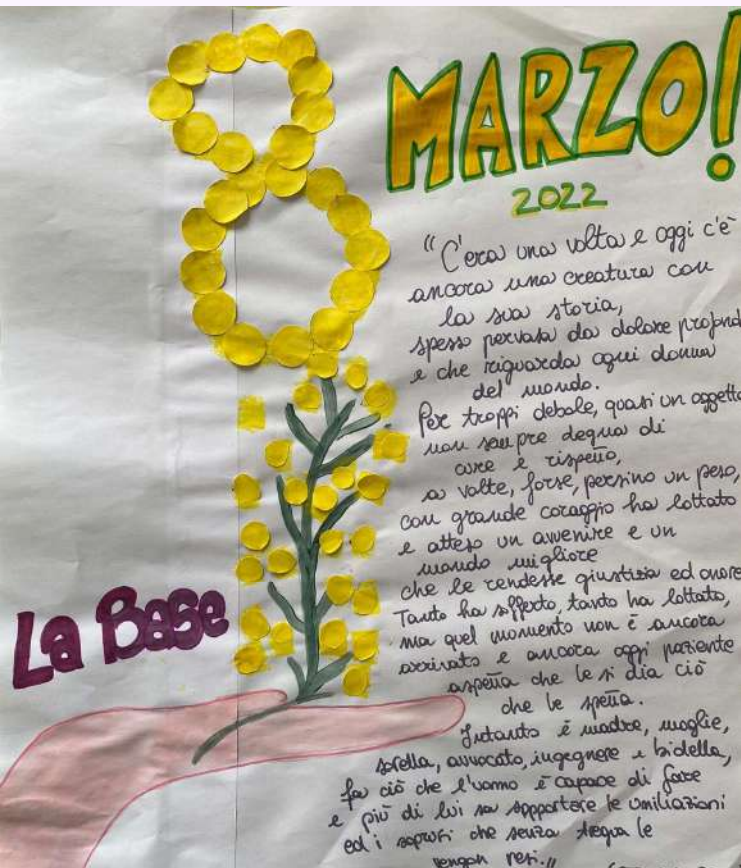 8
MARZO!
2022
"C'era una volta e oggi c'è
ancora una creatura con
la sua storia,
spesso pervasa da dolore profond
e che riguarda ogni donna
del mondo.
Per troppi debole, quasi un oggetto
non sempre degna di
cure e rispetto,
a volte, forse, persino un peso,
con grande coraggio ha lottato
e atteso un avvenire e un
mondo migliore
che le rendesse giustizia ed onore
Tanto ha sofferto, tanto ha lottato,
ma quel momento non è ancora
arrivato e ancora oggi paziente
aspetta che le si dia ciò
che le spetta.
Intanto è madre, moglie,
sorella, avvocato, ingegnere e bidella,
fa ciò che l'uomo è capace di fare
e più di lui sa sopportare le umiliazioni
ed i soprusi che senza tregua le
vengon resi."
La Base